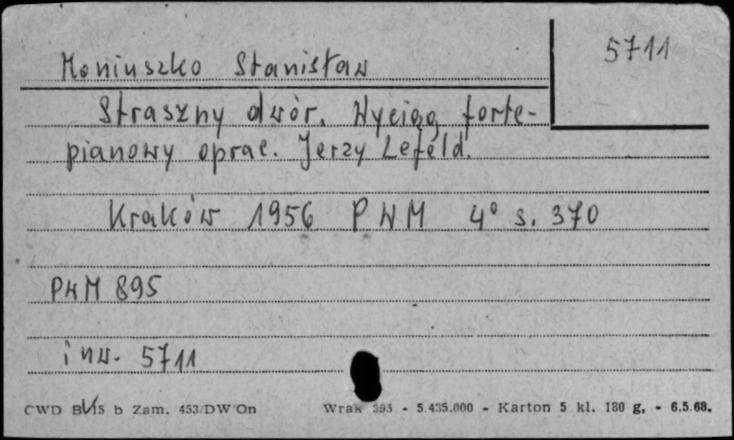 5711
Moniuszko Stanisław
Straszny dwór. Wyciąg forte-
pianowy oprac. Jerzy Lefeld.
Kraków 1956 PWM 4° s. 370
PWM 895
inw. 5711
CWD B 15 b Zam. 453/DW/On Wrak 395 - 5.435.000 - Karton 5 kl. 180 g, - 6.5.68.